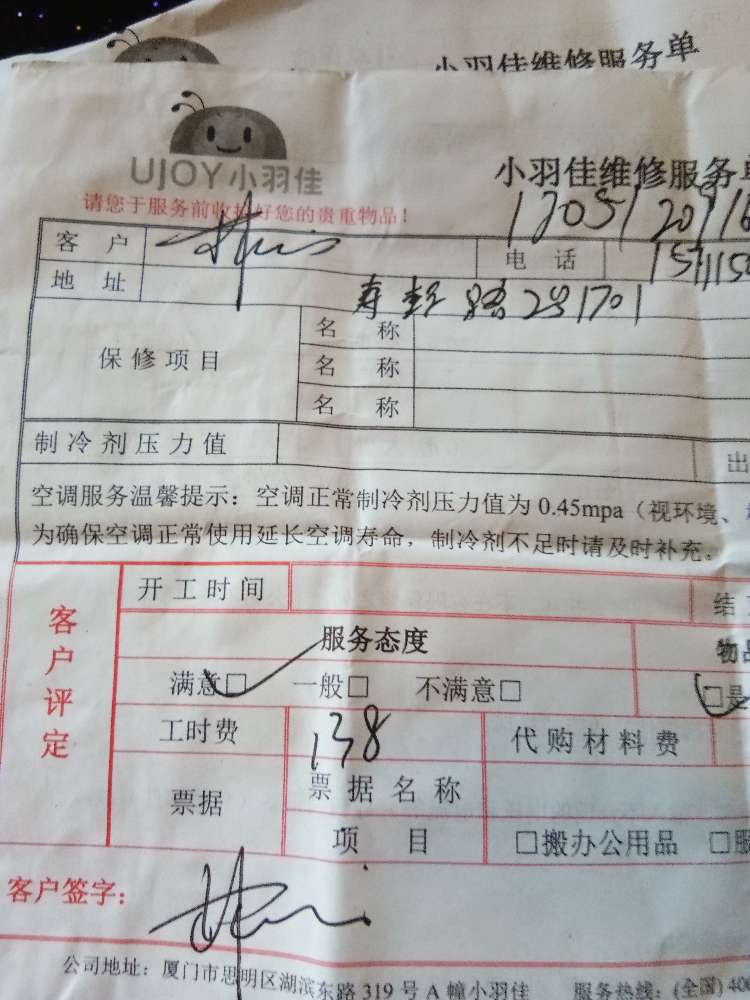 小羽佳维修服务单
UJOY小羽佳
小羽佳维修服务单
请您于服务前收拾好您的贵重物品!
客 户
电 话
地 址 281701
保修项目
名 称
名 称
名 称
制冷剂压力值
出
空调服务温馨提示:空调正常制冷剂压力值为 0.45mpa(视环境、
为确保空调正常使用延长空调寿命,制冷剂不足时请及时补充。
客户评定
开工时间
结
服务态度
物品
满意□ 一般□ 不满意□
□是
工时费 138 代购材料费
票据
票据名称
项 目 □搬办公用品 □服
客户签字:
公司地址:厦门市思明区湖滨东路 319 号 A 幢小羽佳 服务热线:(全国) 400